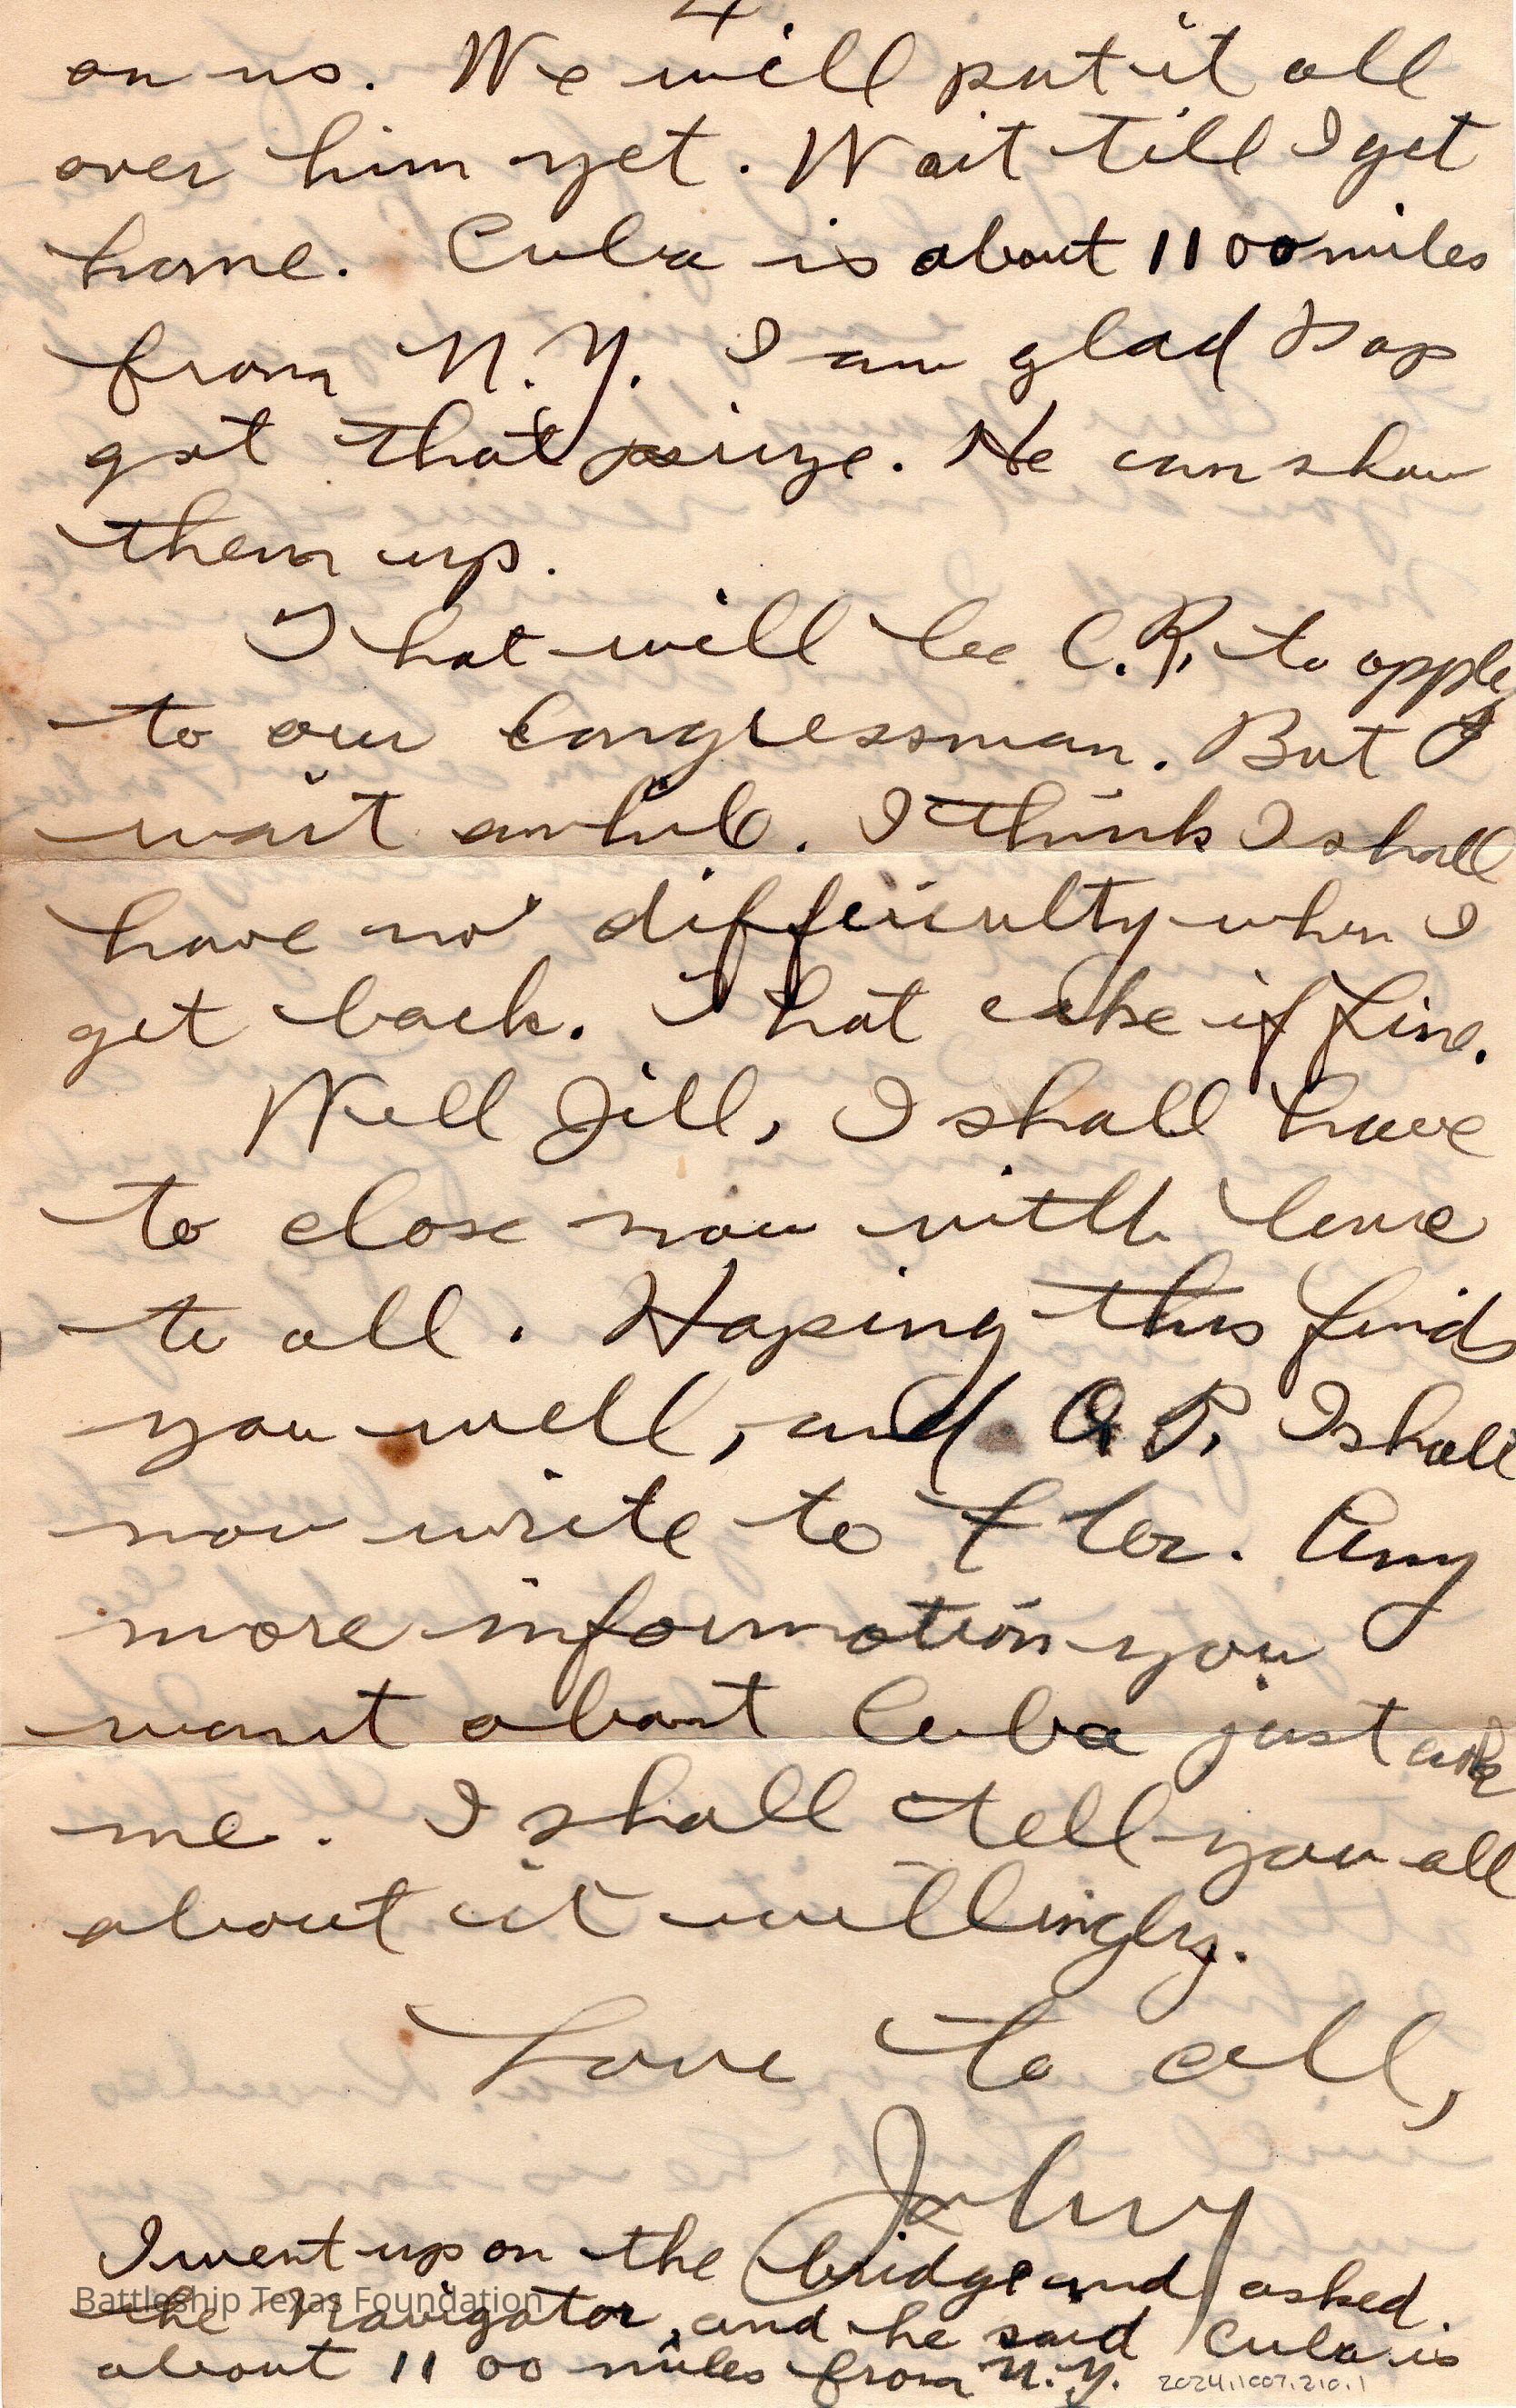 4.
on us. We will put it all
over him yet. Wait till I get
home. Cuba is about 1100 miles
from N.Y. I am glad Pop
got that prize. He can show
them up.
That will be C.R. to apply
to our Congressman. But I
wait awhile. I think I shall
have no difficulty when I
get back. That cake if fine.
Well Jill, I shall have
to close now with love
to all. Hoping this finds
you well, and I shall
now write to Flor. Any
more information you
want about Cuba just ask
me. I shall tell you all
about it willingly.
Love to all,
Johny
I went up on the bridge and asked
the Navigator, and he said Cuba is
about 1100 miles from N.Y.
Battleship Texas Foundation
2024.1007.210.1